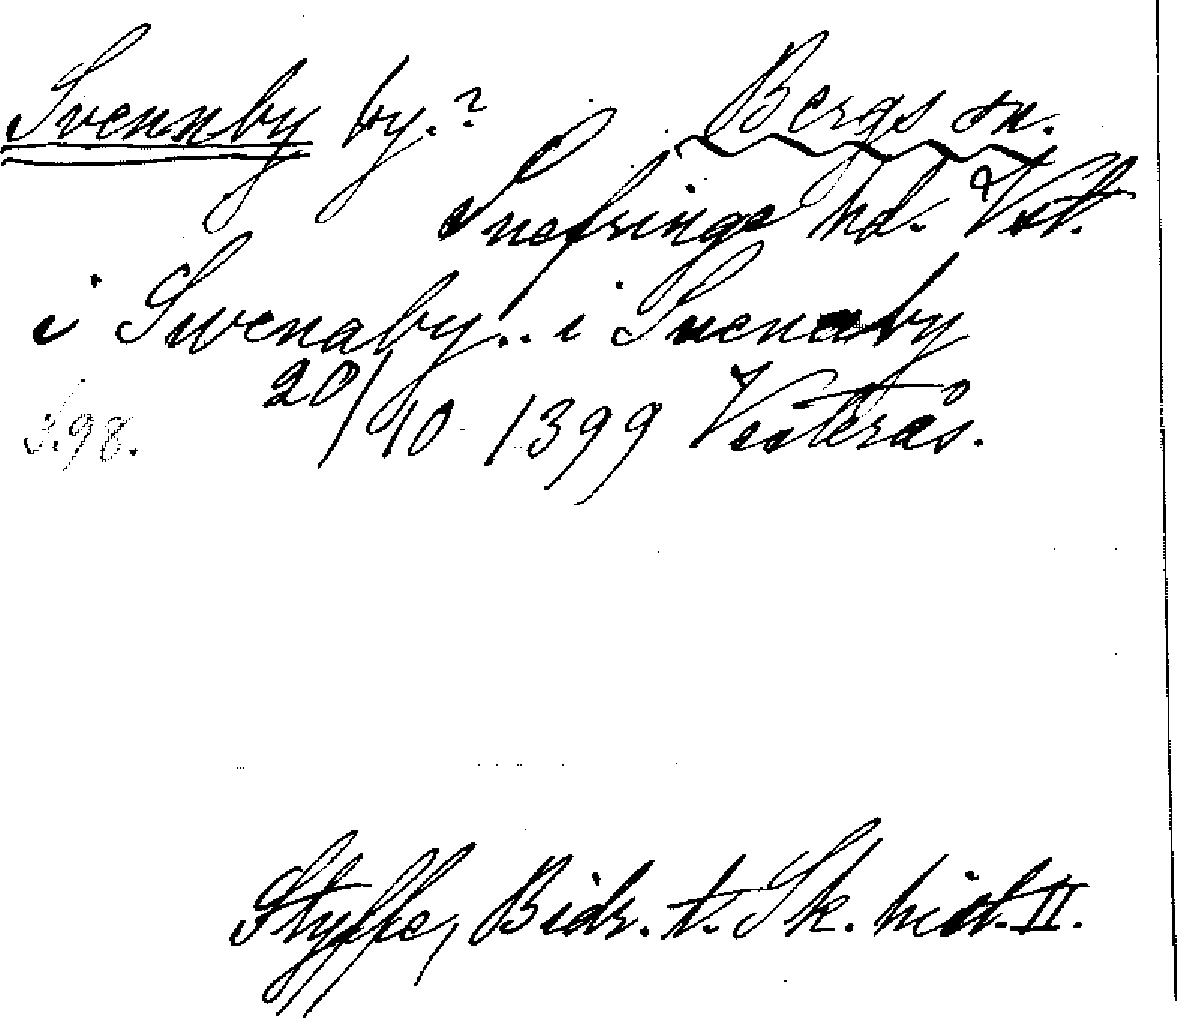 Svennby by.? Bergs sn.
Snefringe hd. Vstl.
i Swenaby.. i Suenaby
S.98. 20/10 1399 Vesterås.
Styffe, Bidr. t. Sk. hist. II.